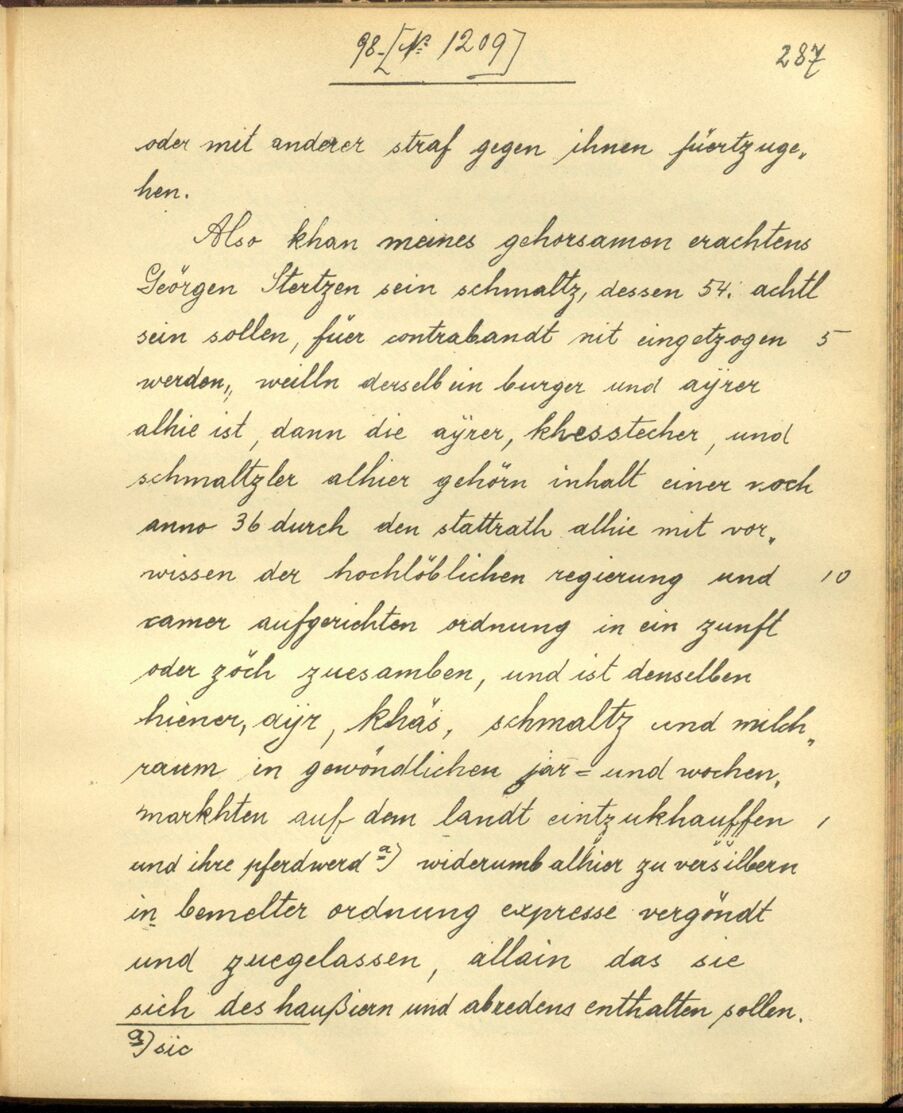 98-[№ 1209]
287
oder mit anderer straf gegen ihnen füertzuge„
hen.
Also khan meines gehorsamen erachtens
Geörgen Stertzen sein schmaltz, dessen 54. achtl
sein sollen, füer contrabandt nit eingetzogen 5
werden,, weilln derselb ein burger und aÿrer
alhie ist, dann die aÿrer, khesstecher, und
schmaltzler alhier gehörn inhalt einer noch
anno 36 durch den stattrath alhie mit vor„
wissen der hochlöblichen regierung und 10
camer aufgerichten ordnung in ein zunft
oder zöch zuesamben, und ist denselben
hiener, aÿr, khäs, schmaltz und milch„
raum in gewöndlichen jar= und wochen„
markhten auf dem landt eintzukhauffen 1
und ihre pferdwerd a) widerumb alhier zu versilbern
in bemelter ordnung expresse vergöndt
und zuegelassen, allain das sie
sich des haußiern und abredens enthalten sollen.
a) sic